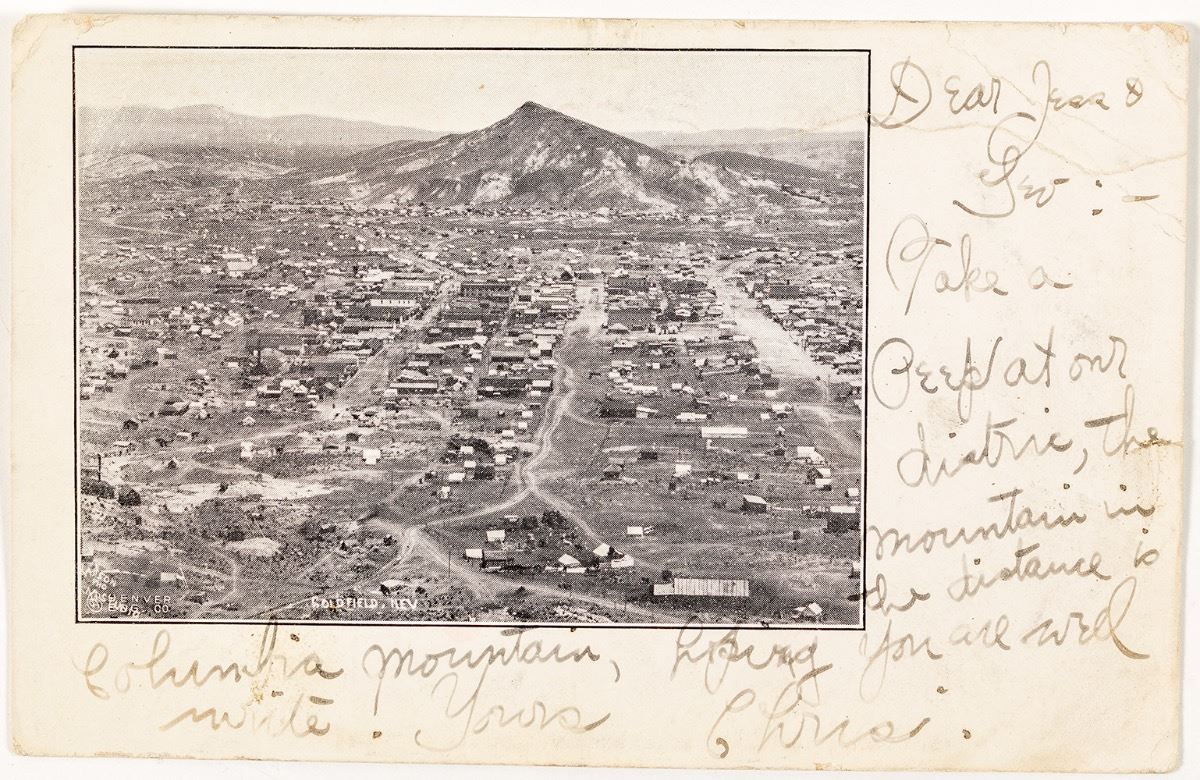 Dear Jess &
Geo :-
Take a
Peep at our
distric, the
mountain in
the distance is
Columbia mountain, hoping you are well
write. Yours Chris.
DENVER
ENG. CO.
GOLDFIELD, NEV